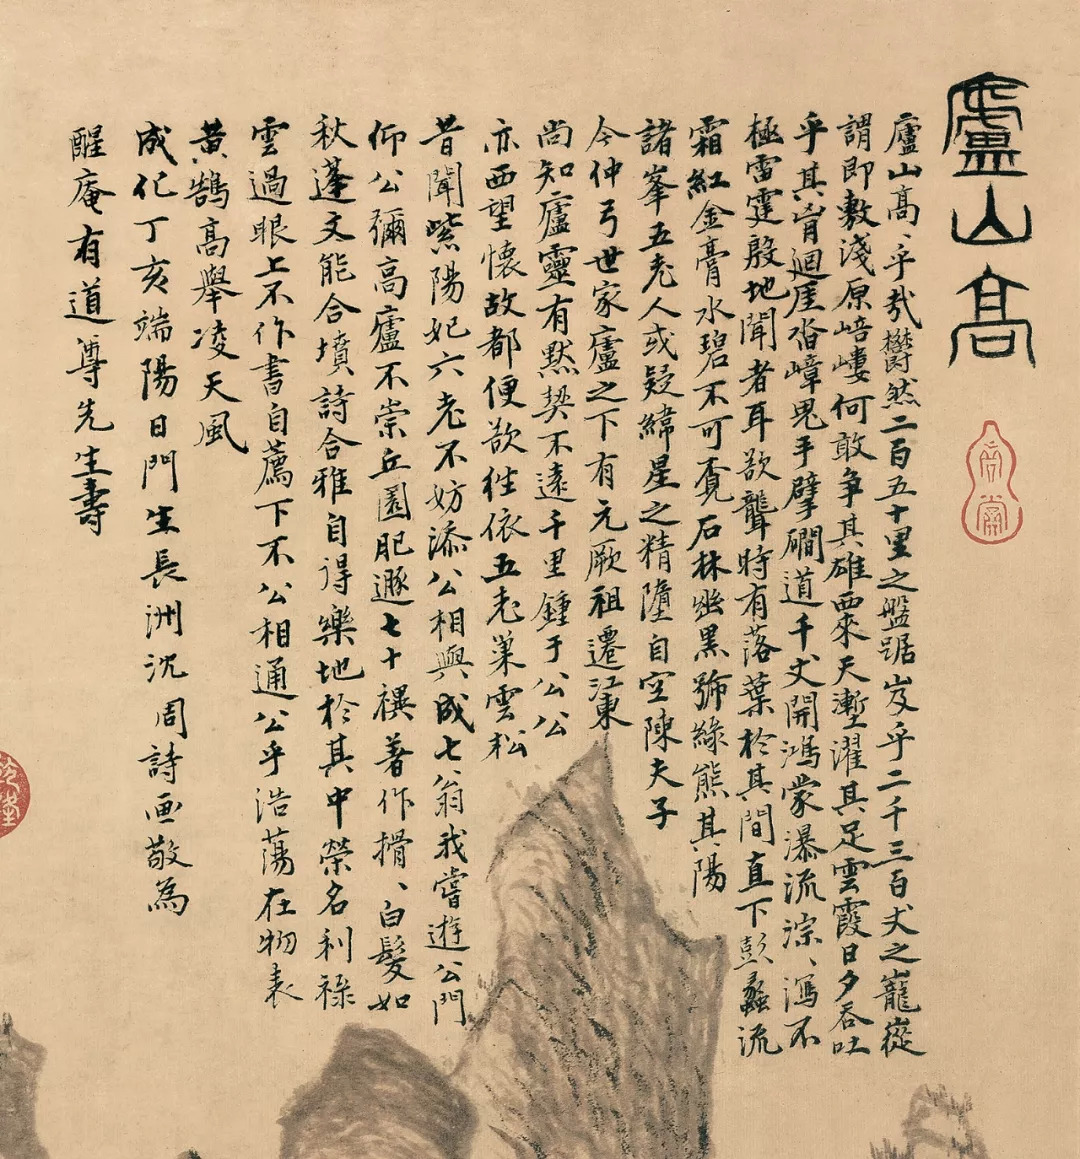 廬山高
廬山高、乎哉鬱然二百五十里之盤踞岌乎二千三百丈之巃嵸
謂即敷淺原㟝嶁何敢爭其雄西來天塹濯其足雲霞日夕吞吐
乎其胷迴厓沓嶂鬼手擘磵道千丈開鴻蒙瀑流淙、瀉不
極雷霆殷地聞者耳欲聾時有落葉於其間直下彭蠡流
霜紅金膏水碧不可覔石林幽黑號綠熊其陽
諸峯五老人或疑緯星之精墮自空陳夫子
今仲弓世家廬之下有元厥祖遷江東
尚知廬靈有默契不遠千里鍾于公公
亦西望懷故都便欲往依五老巢雲松
昔聞紫陽妃六老不妨添公相與成七翁我嘗遊公門
仰公彌高廬不崇丘園肥遯七十禩著作搰、白髮如
秋蓬文能合墳詩合雅自得樂地於其中榮名利祿
雲過眼上不作書自薦下不公相通公乎浩蕩在物表
黄鵠高舉凌天風
成化丁亥端陽日門生長洲沈周詩画敬為
醒庵有道尊先生壽
乾隆